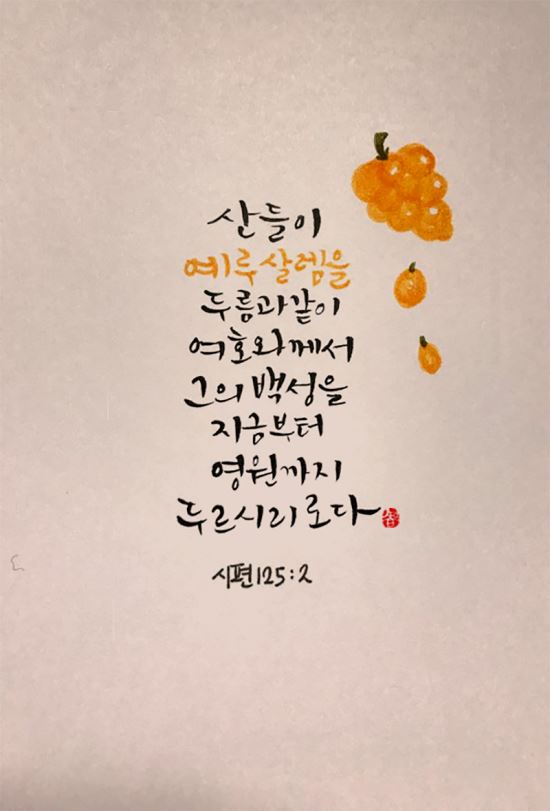 산들이
예루살렘을
두름과같이
여호와께서
그의 백성을
지금부터
영원까지
두르시리로다
시편 125:2